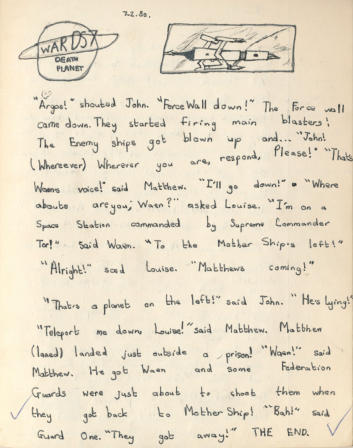 22.80.
WARDS 7
DEATH
PLANET
"Argos!" shouted John. "Force Wall down!" The Force wall
came down. They started firing main blasters!
The Enemy ships got blown up and... "John!
(Whereever) Wherever you are, respond, Please!" "That's
Waens voice!" said Matthew. "I'll go down!" "Where
abouts are you, Waen?" asked Louise. "I'm on a
Space Station commanded by Supreme Commander
Tor!" Said Waen. "To the Mother Ship's left!"
"Alright!" said Louise. "Matthews coming!"
"That's a planet on the left!" said John. "He's lying!"
"Teleport me down, Louise!" said Matthew. Matthew
(laned) landed just outside a prison! "Waen!" said
Matthew. He got Waen and some Federation
Guards were just about to shoot them when
they got back to Mother Ship! "Bah!" said
Guard One. "They got away!" THE END.